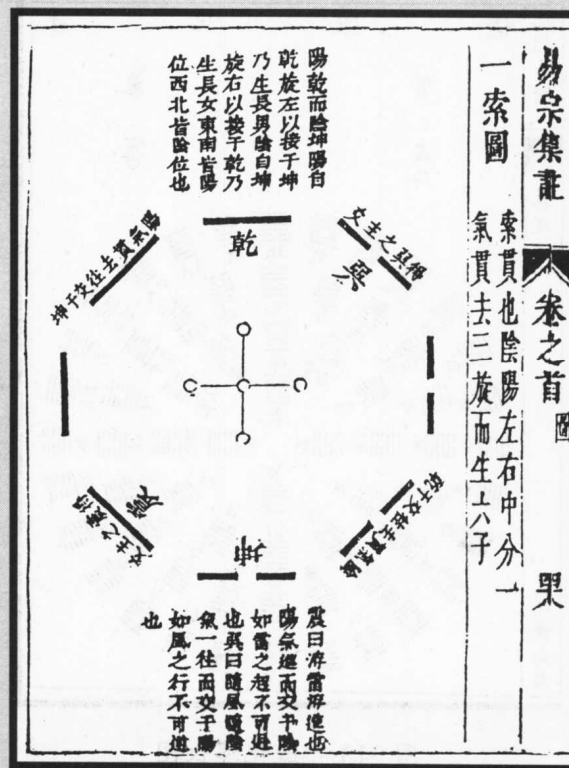 易宗集註 卷之首 圖
一索圖
索貫也陰陽左右中分一
氣貫去三旋而生六子
陽乾而陰坤陽自
乾旋左以接于坤
乃生長男陰自坤
旋右以接于乾乃
生長女東南皆陽
位西北皆陰位也
乾
巽
陽氣貫去往交于坤
陰氣貫去往交于乾
震
坤
震曰洊雷洊也
陽氣而交于陰
如雷之起不可遏
也巽曰隨風隨陰
氣一往而交于陽
如風之行不可遏
也